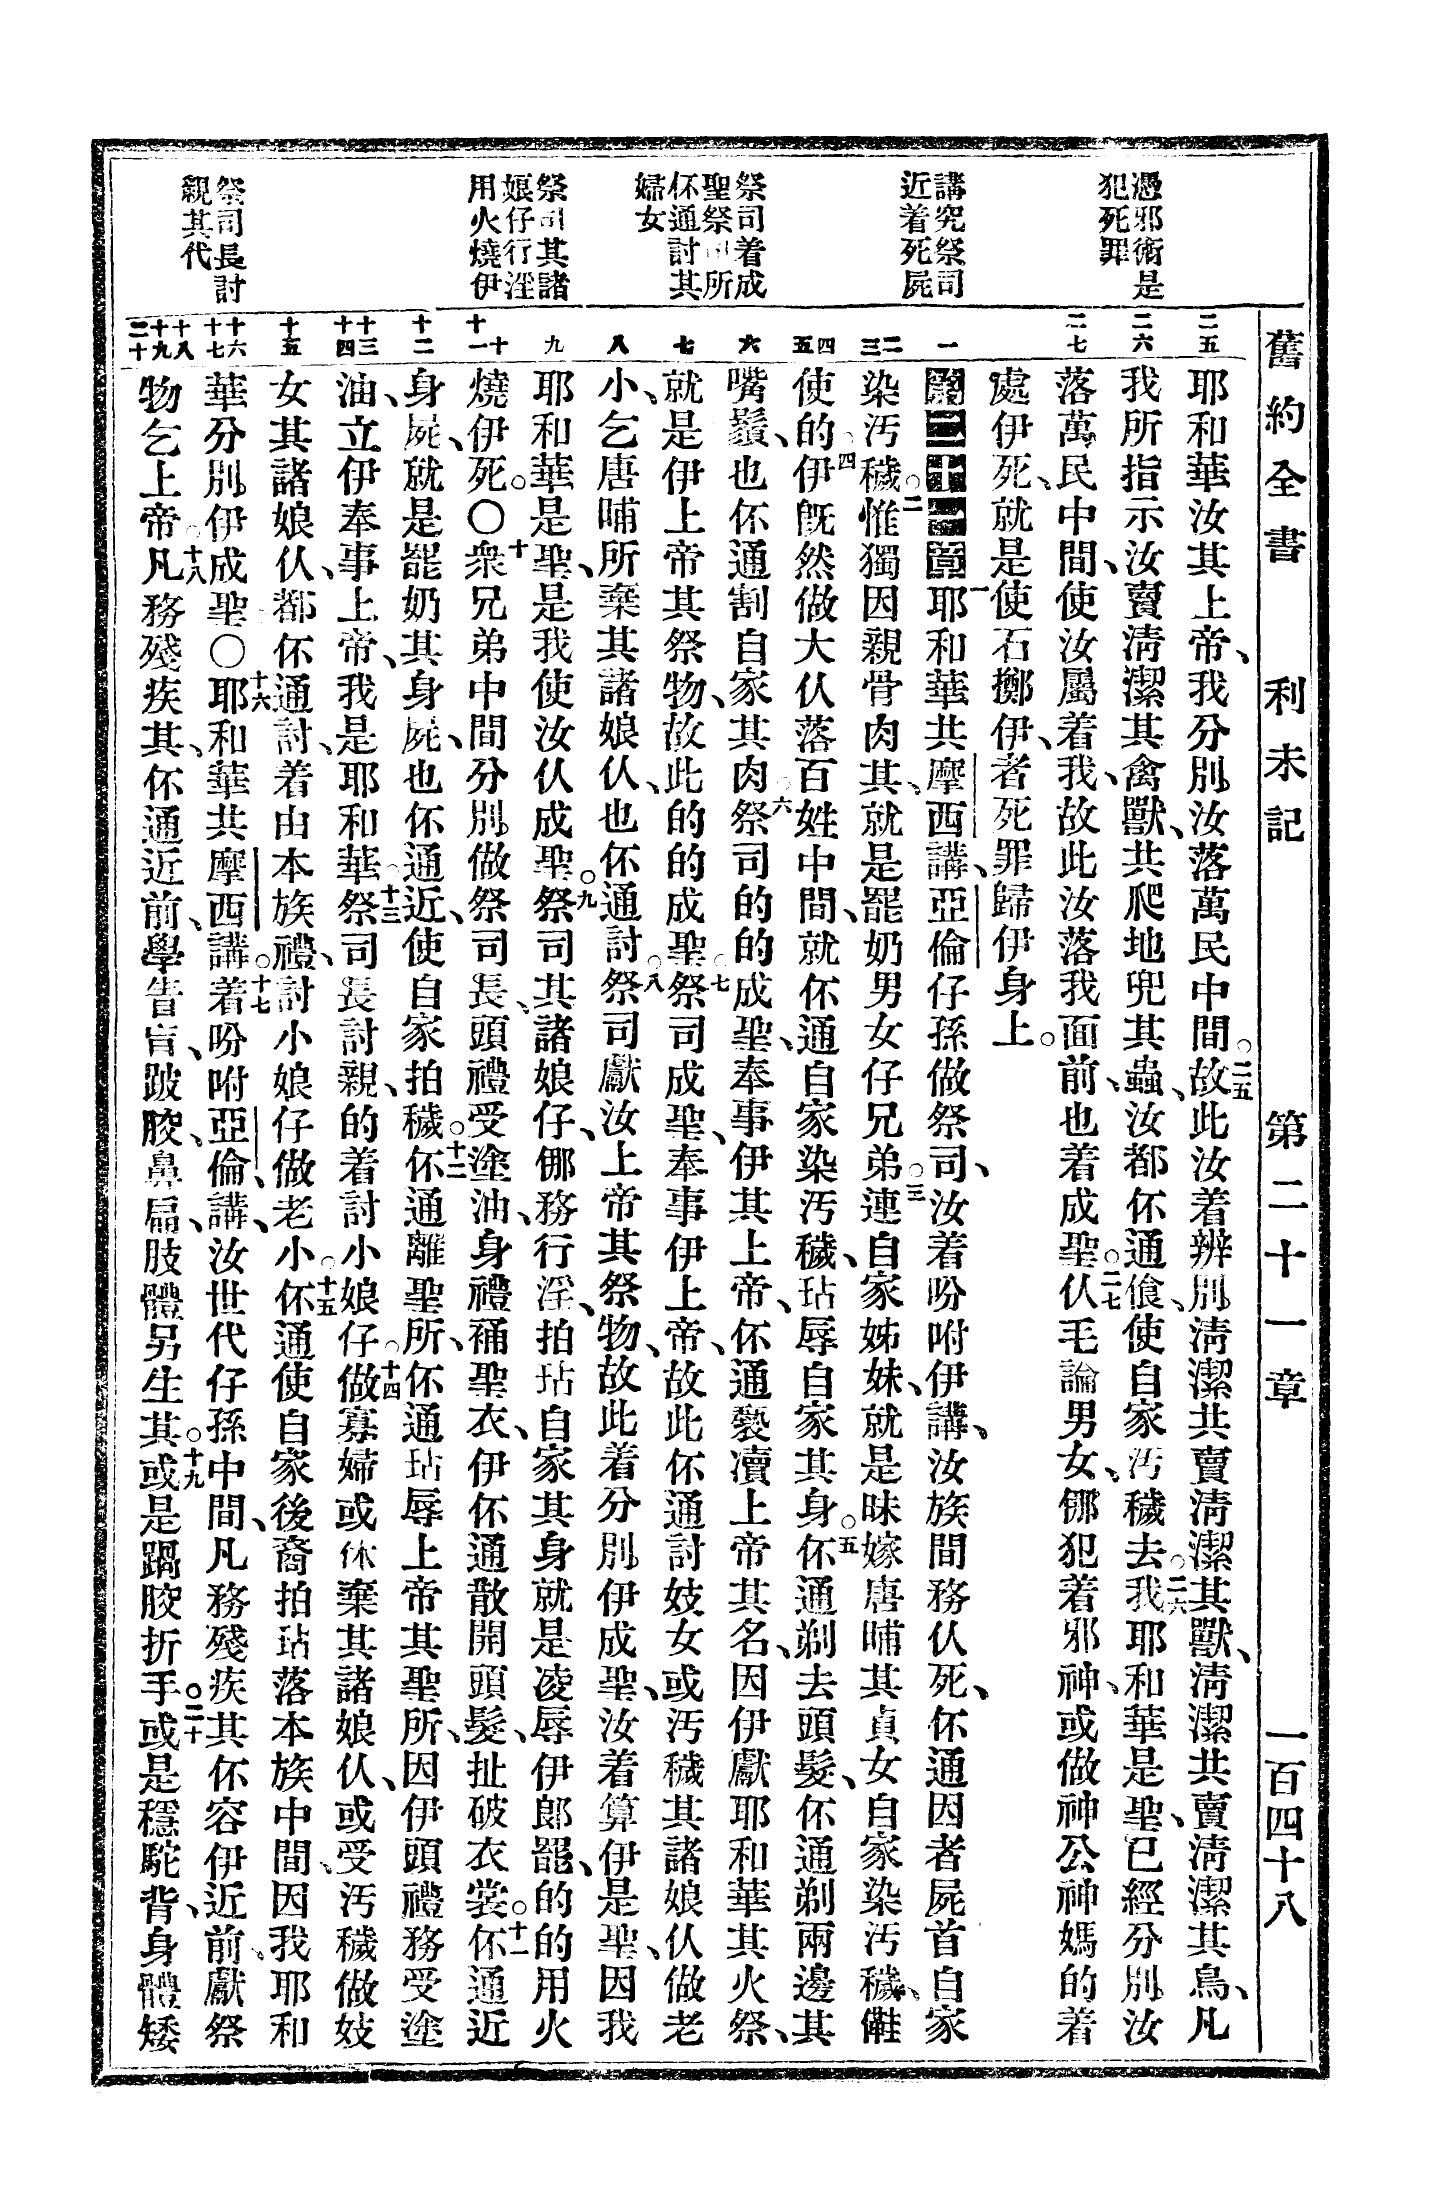 舊約全書　利未記　第二十一章　一百四十八
憑邪術是
犯死罪
講究祭司
近着死屍
祭司着成
聖祭司所
伓通討其
婦女
祭司其諸
娘仔行淫
用火燒伊
祭司長討
親其代
二五
二六
二七
一
二
三
四
五
六
七
八
九
十
十一
十二
十三
十四
十五
十六
十七
十八
十九
二十
耶和華汝其上帝、我分別汝落萬民中間。二五故此汝着辨別淸潔共賣淸潔其獸、淸潔共賣淸潔其鳥、凡
我所指示汝賣淸潔其禽獸、共爬地兜其蟲、汝都伓通飡、使自家汚穢去。二六我耶和華是聖、已經分別汝
落萬民中間、使汝屬着我、故此汝落我面前、也着成聖。二七仈毛論男女、㑚犯着邪神、或做神公神媽的着
處伊死、就是使石擲伊、者死罪歸伊身上。
第二十一章 一耶和華共摩西講、亞倫仔孫做祭司、汝着吩咐伊講、汝族間務仈死、伓通因者屍首自家
染汚穢。二惟獨因親骨肉其、就是罷奶男女仔兄弟。三連自家姊妹、就是昧嫁唐晡其貞女自家染汚穢、儺
使的。四伊旣然做大仈落百姓中間、就伓通自家染汚穢、玷辱自家其身。五伓通剃去頭髮、伓通剃兩邊其
嘴鬚、也伓通割自家其肉。六祭司的的成聖、奉事伊其上帝、伓通褻瀆上帝其名、因伊獻耶和華其火祭、
就是伊上帝其祭物、故此的的成聖。七祭司成聖、奉事伊上帝、故此伓通討妓女、或汚穢其諸娘仈做老
小、乞唐晡所棄其諸娘仈、也伓通討。八祭司獻汝上帝其祭物、故此着分別伊成聖、汝着算伊是聖、因我
耶和華是聖、是我使汝仈成聖。九祭司其諸娘仔、㑚務行淫、拍玷自家其身、就是凌辱伊郎罷、的的用火
燒伊死。〇十衆兄弟中間分別做祭司長、頭禮受塗油、身禮䙓聖衣、伊伓通散開頭髮、扯破衣裳。十一伓通近
身屍、就是罷奶其身屍、也伓通近、使自家拍穢。十二伓通離聖所、伓通玷辱上帝其聖所、因伊頭禮務受塗
油、立伊奉事上帝、我是耶和華。十三祭司長討親、的着討小娘仔。十四做寡婦或休棄其諸娘仈、或受汚穢做妓
女其諸娘仈、都伓通討、着由本族禮、討小娘仔做老小。十五伓通使自家後裔拍玷落本族中間、因我耶和
華分別伊成聖〇十六耶和華共摩西講。十七着吩咐亞倫講、汝世代仔孫中間、凡務殘疾其伓容伊近前、獻祭
物乞上帝。十八凡務殘疾其、伓通近前、學眚盲、跛骹、鼻扁、肢體另生其。十九或是蹋骹折手。二十或是穩駝背、身體矮